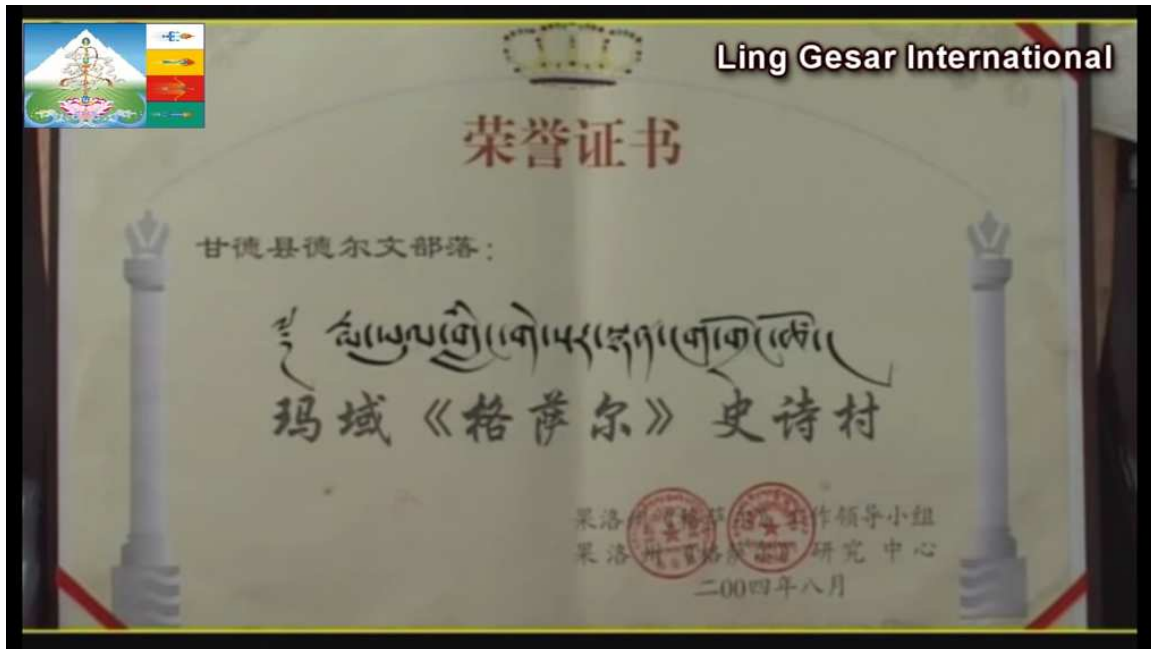 Ling Gesar International
荣誉证书
甘德县德尔文部落：
མ་ཡུལ་གྱི་གེ་སར་
玛域《格萨尔》史诗村
果洛州《格萨尔》工作领导小组
果洛州《格萨尔》研究中心
二00四年八月